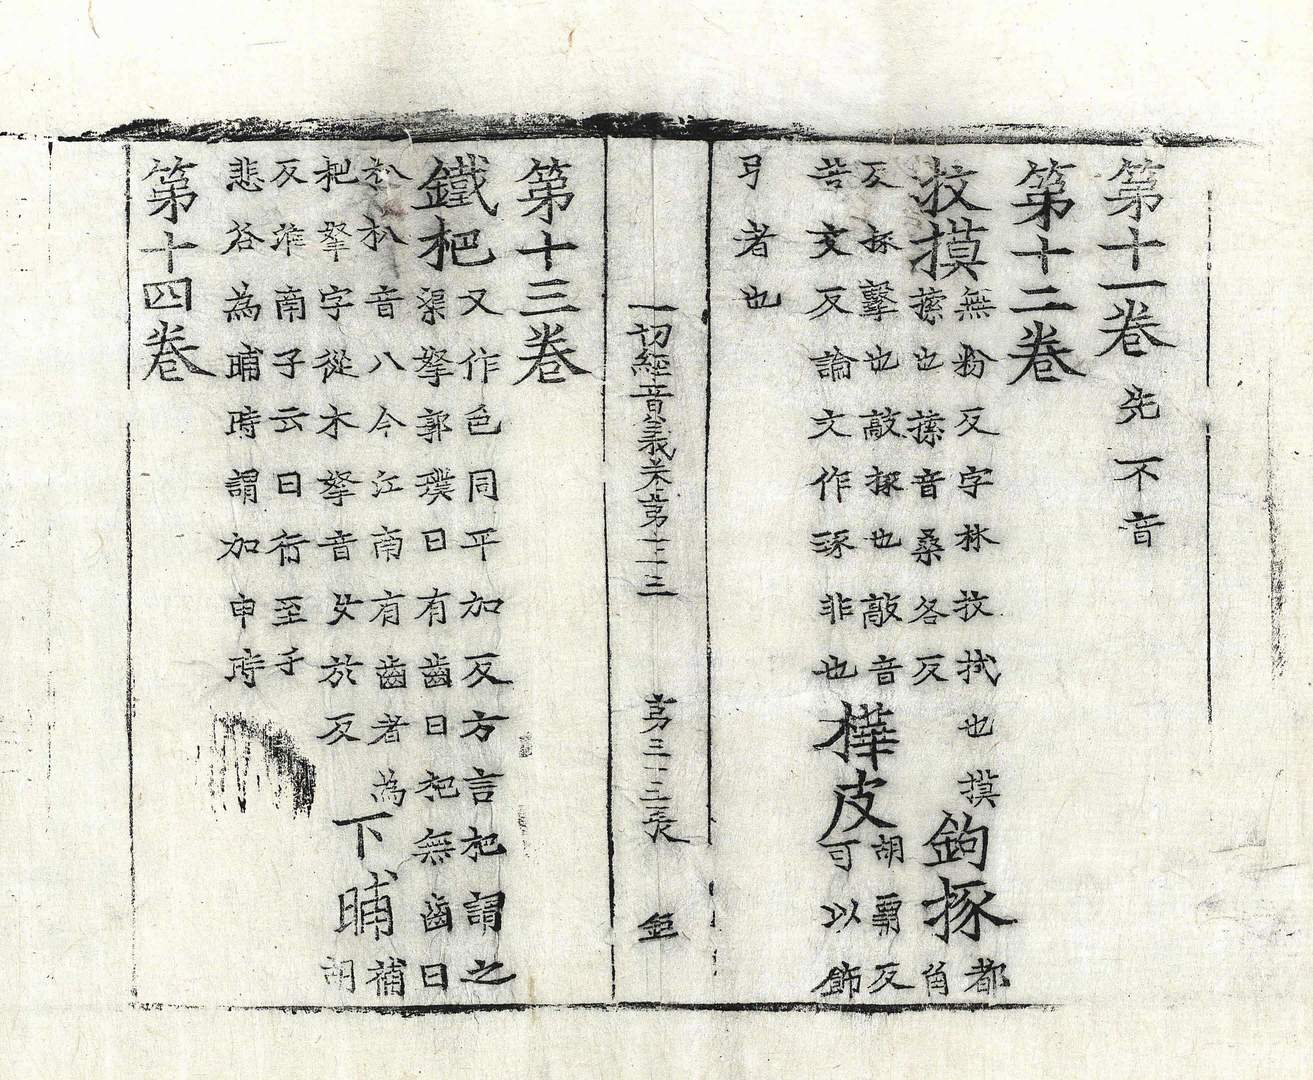 第十一卷 先不音
第十二卷
抆摸
無粉反字林抆拭也摸
㨞也㨞音桑各反
鉤㧻
都
角
反㧻擊也敲㧻也敲音
苦交反論文作琢非也
樺皮
胡霸反
可以飾
弓者也
一切經音義卷第十三 第三十三張 鉅
第十三卷
鐵杷
又作色同平加反方言杷謂之
渠挐郭璞曰有齒曰杷無齒曰
朳朳音八今江南有齒者為
杷挐字從木挐音女於反
下晡
補
胡
反淮南子云日行至于
悲谷為晡時謂加申時
第十四卷